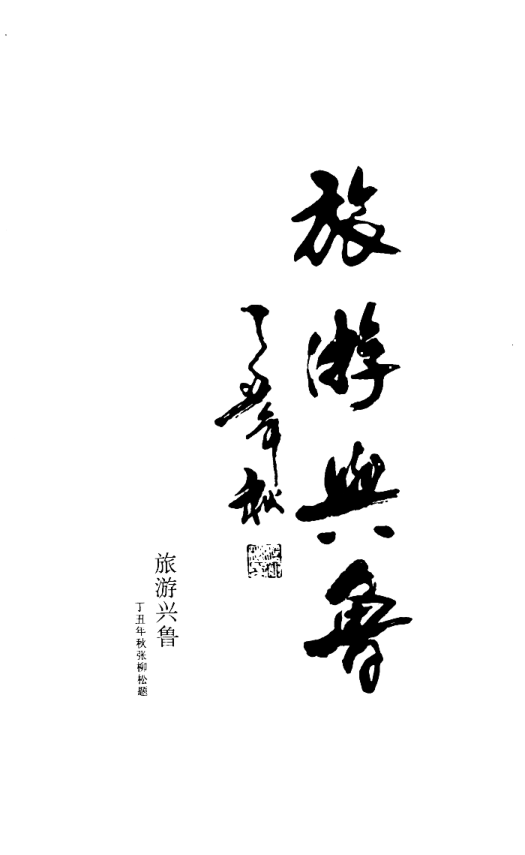 旅游興魯
丁丑年秋
旅游兴鲁
丁丑年秋张柳松题